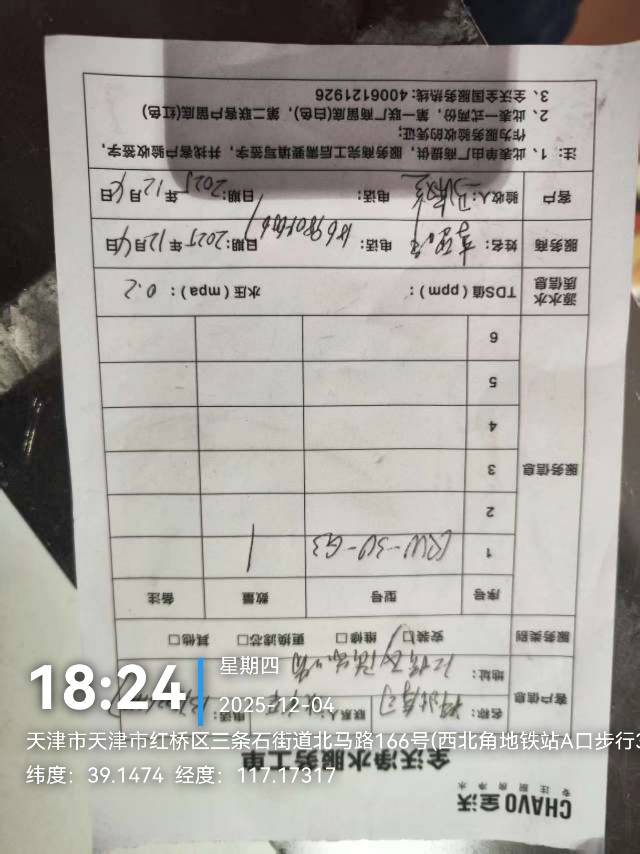 CHAVO 全沃
专注厨房净水
全沃净水服务工单
客户信息 名称： 联系人 电话：
地址：
服务类别 安装☐ 维修☐ 更换滤芯☐ 其他☐
序号 型号 数量 备注
服务信息
1 RW-30-G3 1
2
3
4
5
6
源水水质信息 TDS值（ppm）： 水压（mpa）：0.2
服务商 姓名： 电话： 日期：2025年12月4日
客户 验收人： 电话： 日期：2025年12月4日
注：1、此表单由厂商提供，服务商完工后需填写签字，并找客户验收签字，
作为服务验收的凭证；
2、此表一式两份，第一联厂商留底(白色)，第二联客户留底(红色)
3、全沃全国服务热线：4006121926
18:24
星期四
2025-12-04
天津市天津市红桥区三条石街道北马路166号(西北角地铁站A口步行3
纬度：39.1474 经度：117.17317